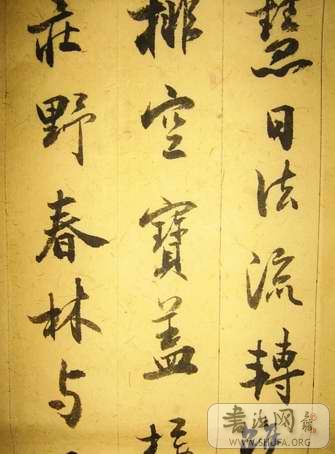 慧日法流轉
排空寶盖
庄野春林与
书法网
WWW.SHUFA.ORG